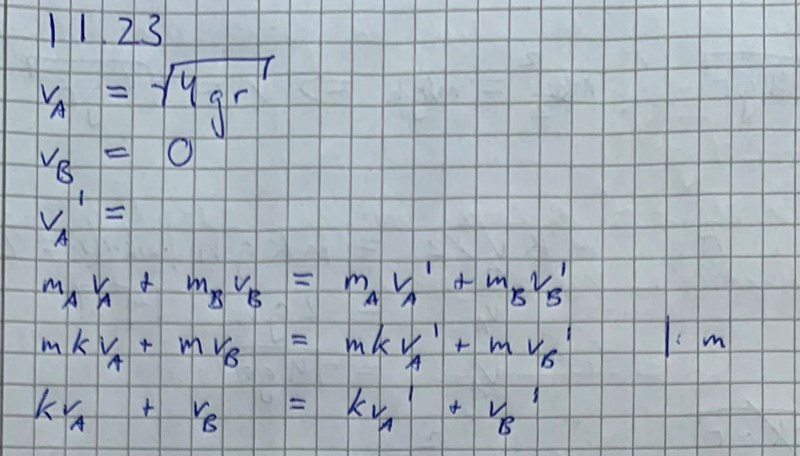 11.23
v_A = √(4gr)
v_B = 0
v_A' =
m_A v_A + m_B v_B = m_A v_A' + m_B v_B'
m k v_A + m v_B = m k v_A' + m v_B' |: m
k v_A + v_B = k v_A' + v_B'